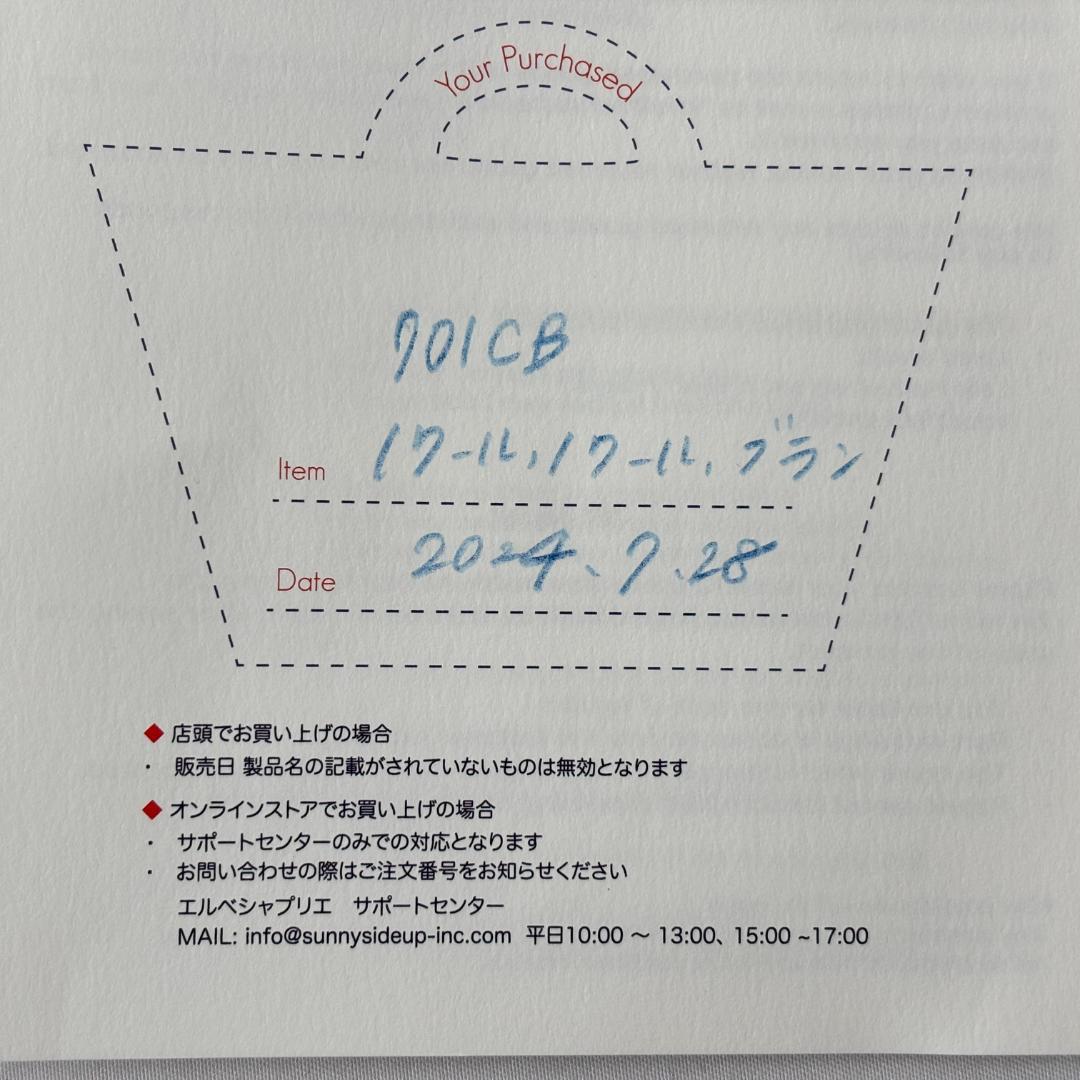 Your Purchased
701CB
Item ノワール,ノワール,ブラン
Date 2024、7.28
◆ 店頭でお買い上げの場合
・ 販売日 製品名の記載がされていないものは無効となります
◆ オンラインストアでお買い上げの場合
・ サポートセンターのみでの対応となります
・ お問い合わせの際はご注文番号をお知らせください
エルベシャプリエ　サポートセンター
MAIL: info@sunnysideup-inc.com 平日10:00 〜 13:00、15:00 ~17:00